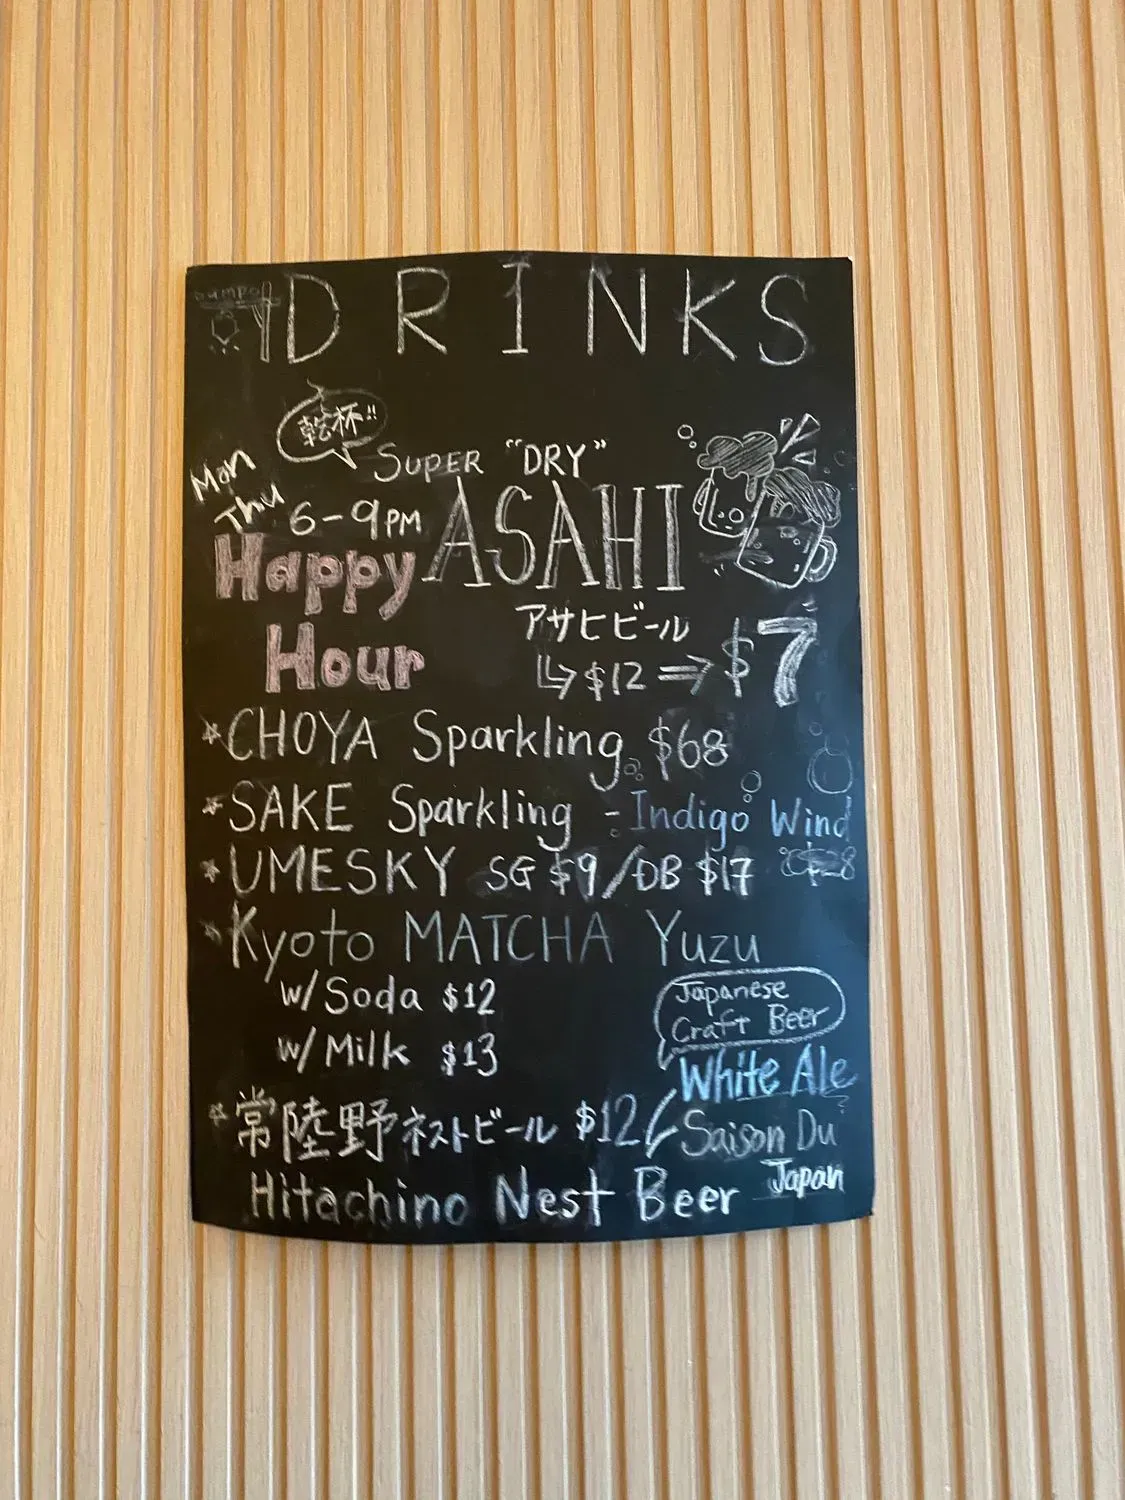 DRINKS
乾杯!!
Mon
Thu
6-9PM
Happy
Hour
SUPER "DRY"
ASAHI
アサヒビール
$12 ⇒ $7
*CHOYA Sparkling $68
*SAKE Sparkling - Indigo Wind
*UMESKY SG $9/DB $17
*Kyoto MATCHA Yuzu
w/Soda $12
w/Milk $13
Japanese
Craft Beer
*常陸野ネストビール $12
Hitachino Nest Beer
White Ale
Saison Du
Japan